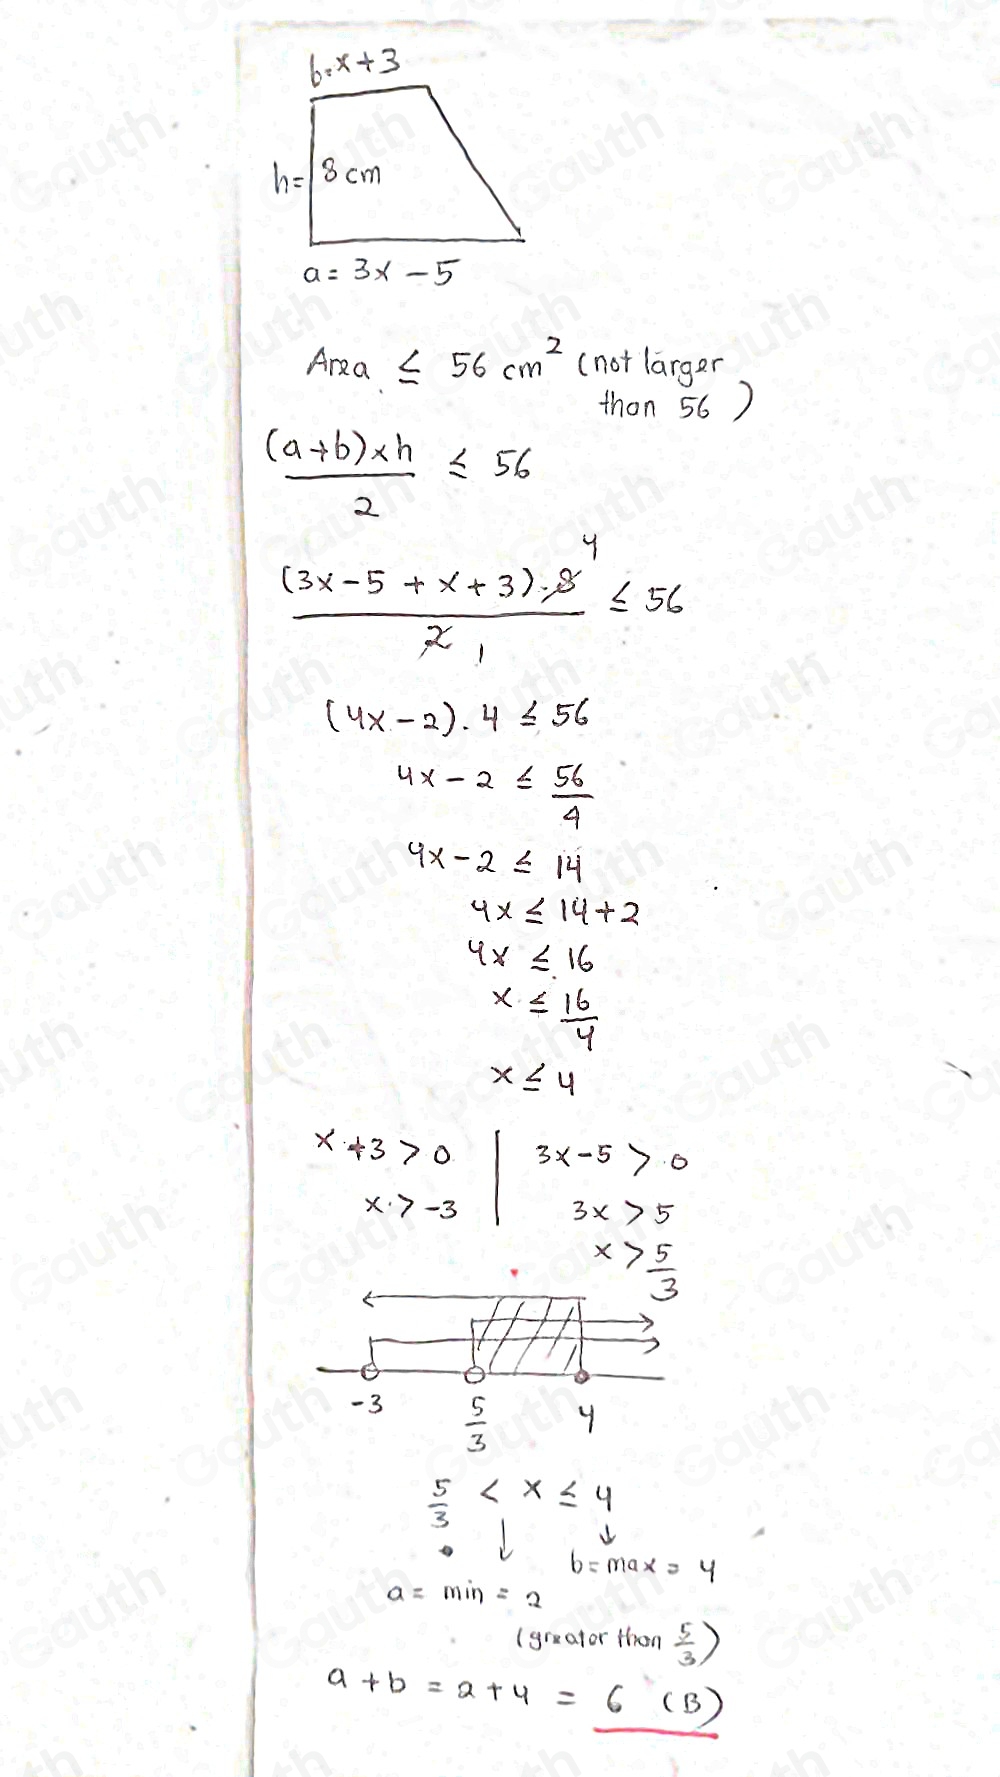 b=x+3
h= 8 cm
a = 3x - 5
Area ≤ 56 cm² (not larger
than 56 )
(a+b)×h / 2 ≤ 56
(3x - 5 + x + 3).8 / 2 ≤ 56
4
1
(4x - 2). 4 ≤ 56
4x - 2 ≤ 56/4
4x - 2 ≤ 14
4x ≤ 14+2
4x ≤ 16
x ≤ 16/4
x ≤ 4
x + 3 > 0 | 3x - 5 > 0
x > -3 | 3x > 5
x > 5/3
-3 5/3 4
5/3 < x ≤ 4
b = max = 4
a = min = 2
(greater than 5/3)
a + b = 2 + 4 = 6 (B)
Gauth